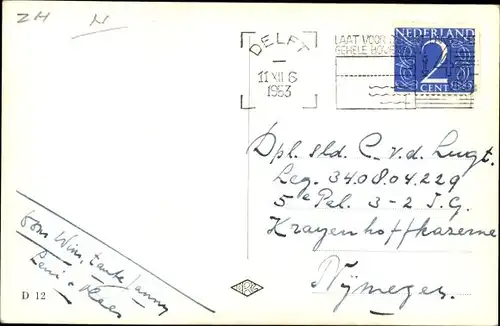 ZH N
DELFT
11 XII 6
1953
LAAT VOOR
GEHELE
NEDERLAND
2
CENT
Dpl. sld. C. v.d. Lugt.
Leg. 34.08.04.229
5e Pel. 3-2 I.G.
Krayenhoffkazerne
Nÿmegen.
oom Wim, tante Janny
Leni + Klaas
D 12